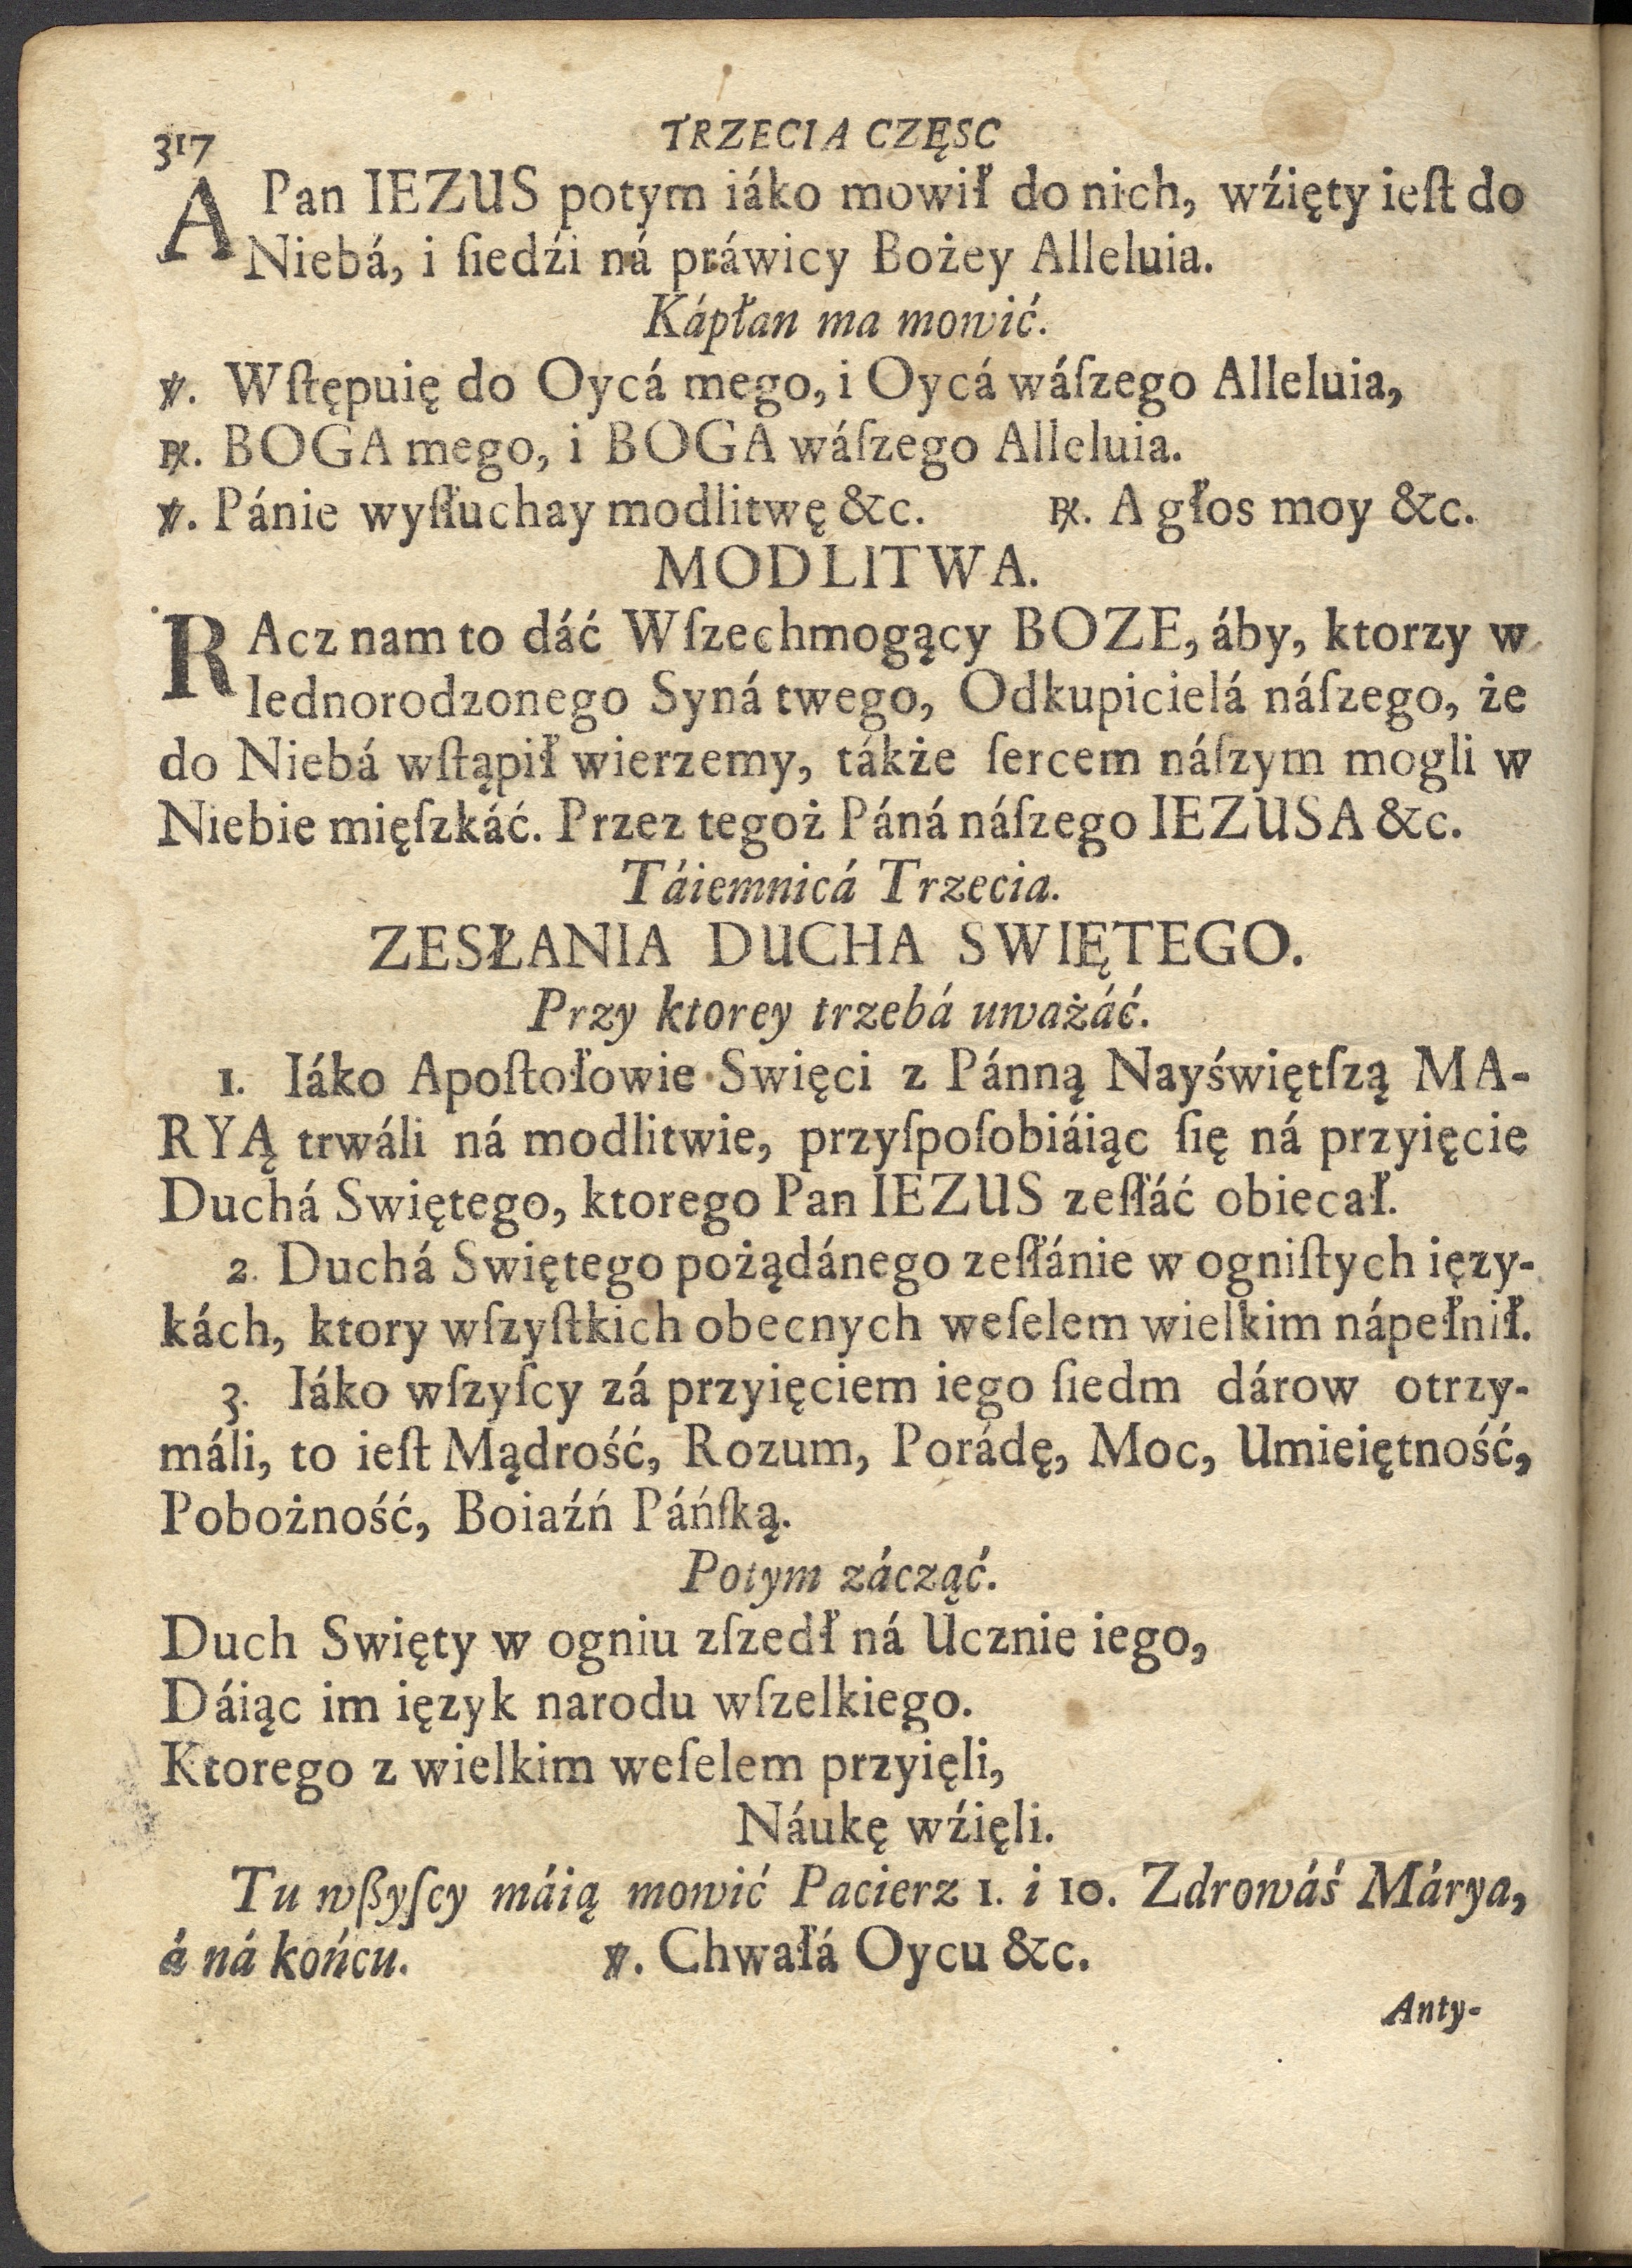 317 TRZECIA CZĘSC
A Pan IEZUS potym iáko mowił do nich, wźięty ieſt do
Niebá, i ſiedźi ná práwicy Bożey Alleluia.
Kápłan ma mowić.
℣. Wſtępuię do Oycá mego, i Oycá wáſzego Alleluia,
℞. BOGA mego, i BOGA wáſzego Alleluia.
℣. Pánie wyſłuchay modlitwę &c. ℞. A głos moy &c.
MODLITWA.
RAcz nam to dáć Wſzechmogący BOZE, áby, ktorzy w
Iednorodzonego Syná twego, Odkupicielá náſzego, że
do Niebá wſtąpił wierzemy, tákże ſercem náſzym mogli w
Niebie mięſzkáć. Przez tegoż Páná náſzego IEZUSA &c.
Táiemnicá Trzecia.
ZESŁANIA DUCHA SWIĘTEGO.
Przy ktorey trzebá uważáć.
1. Iáko Apoſtołowie Swięci z Pánną Nayświętſzą MA-
RYĄ trwáli ná modlitwie, przyſpoſobiáiąc ſię ná przyięcie
Duchá Swiętego, ktorego Pan IEZUS zeſłáć obiecał.
2. Duchá Swiętego pożądánego zeſłánie w ogniſtych ięzy-
kách, ktory wſzyſtkich obecnych weſelem wielkim nápełnił.
3. Iáko wſzyſcy zá przyięciem iego ſiedm dárow otrzy-
máli, to ieſt Mądrość, Rozum, Porádę, Moc, Umieiętność,
Pobożność, Boiaźń Páńſką.
Potym zácząć.
Duch Swięty w ogniu zſzedł ná Ucznie iego,
Dáiąc im ięzyk narodu wſzelkiego.
Ktorego z wielkim weſelem przyięli,
Náukę wźięli.
Tu wßyſcy máią mowić Pacierz 1. i 10. Zdrowáś Márya,
á ná końcu. ℣. Chwałá Oycu &c.
Anty-